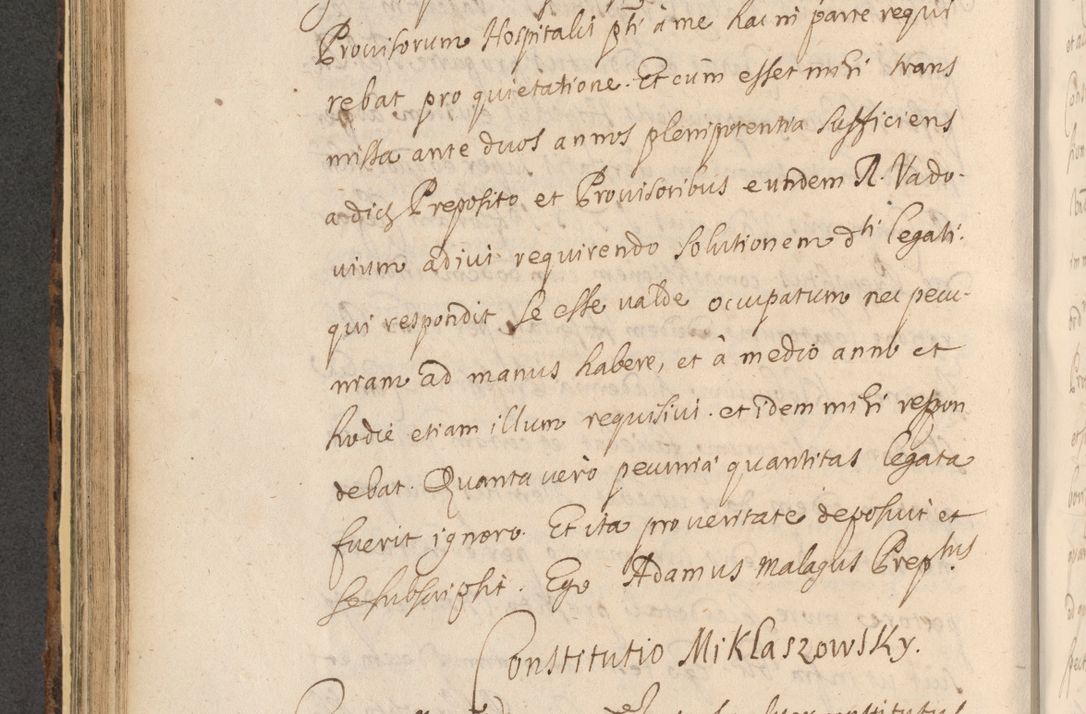 Provisorum Hospitalis pti à me hac in parte requi
rebat pro quietatione. Et cum esset mihi trans
missa ante duos annos plenipotentia sufficiens
a dicto Preposito et Provisoribus eundem R. Vado-
vium adivi requirendo solutionem dti legati.
qui respondit se esse valde occupatum nec pecu-
niam ad manus habere, et à medio anno et
hodie etiam illum requisivi. et idem mihi respon
debat. Quanta vero pecunia quantitas legata
fuerit ignoro. Et ita pro veritate deposuit et
se subscripsit. Ego Adamus Malagus Preptus
Constitutio Miklaszowsky.